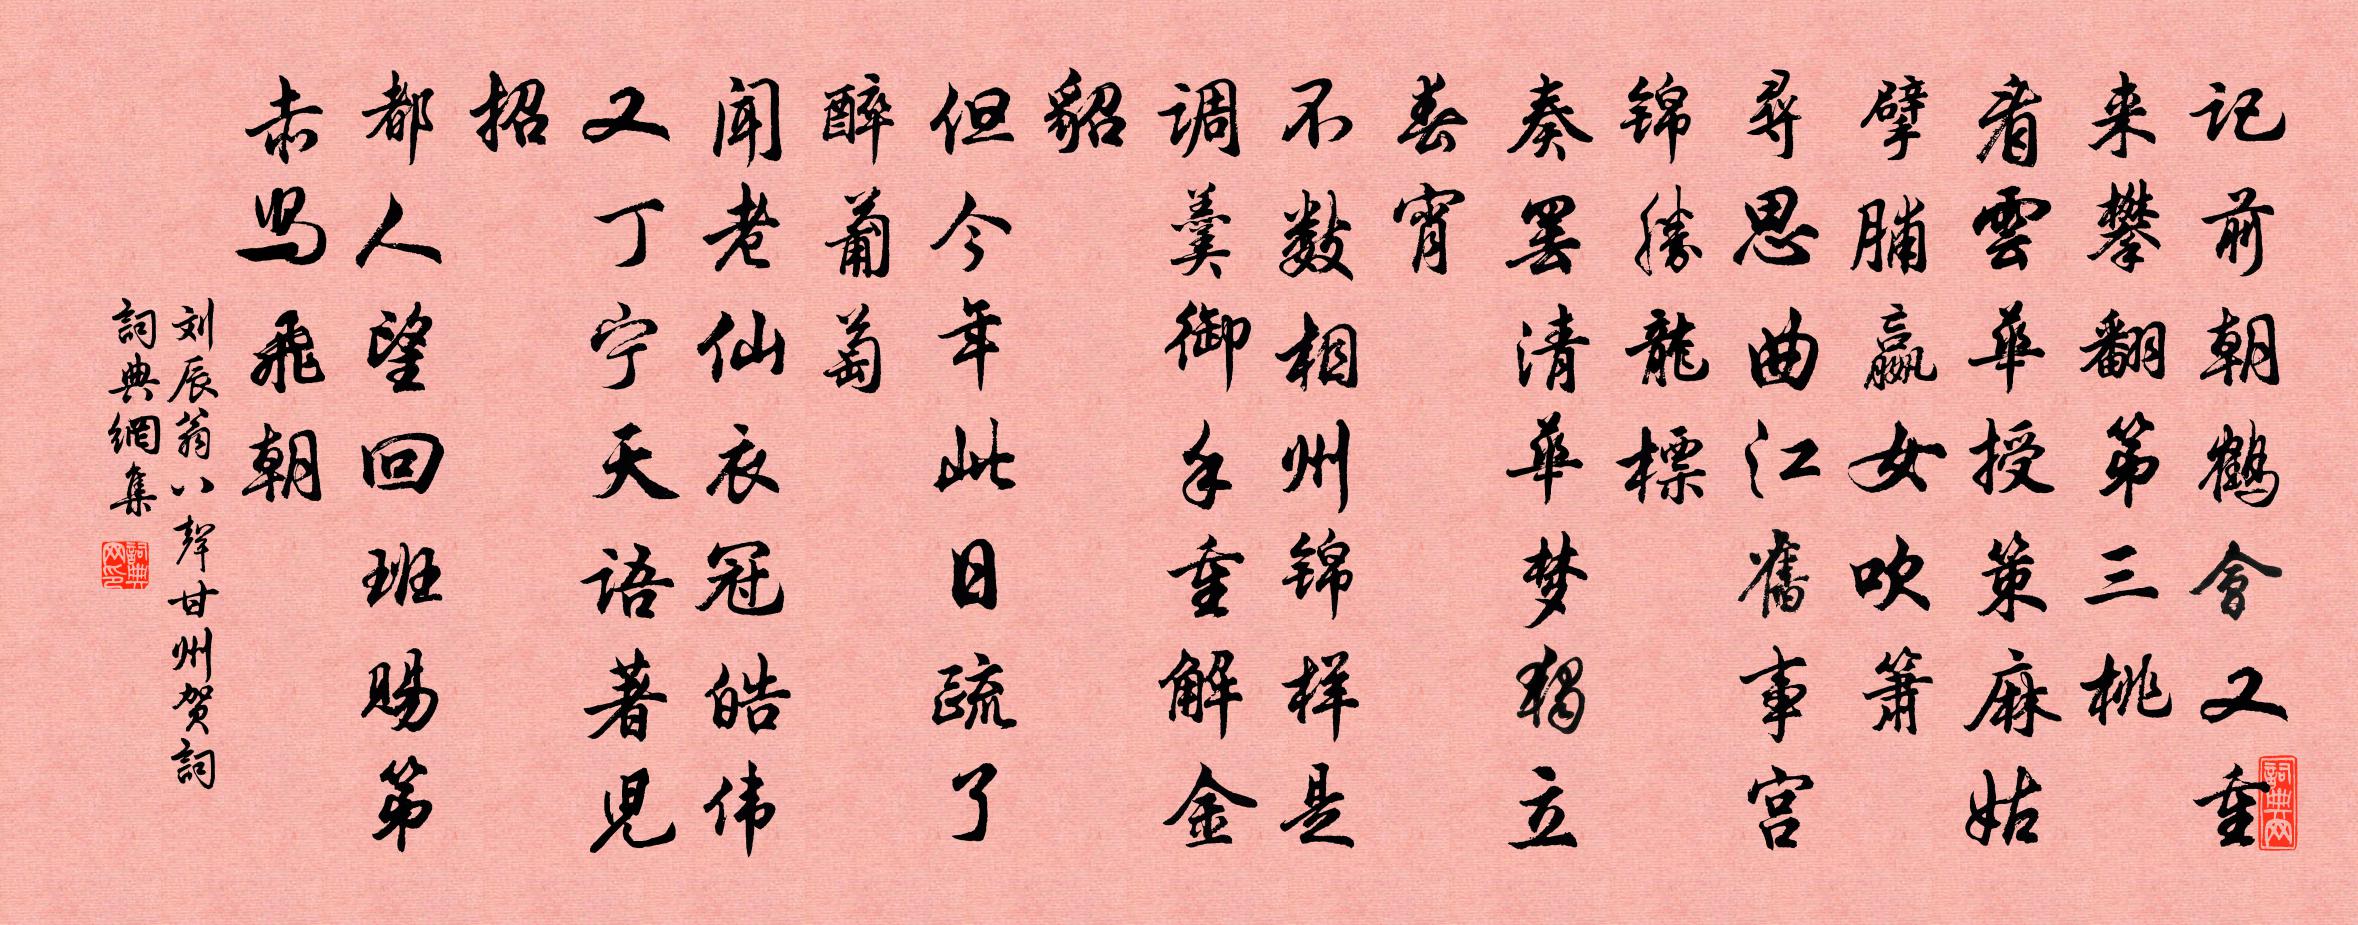 记前朝鹤会又重
来攀翻第三桃
看雲華授策麻姑
擘脯嬴女吹箫
尋思曲江舊事宫
锦勝龍標
奏罢清華梦獨立
春宵
不数相州锦样是
调羹御手重解金
貂
但今年此日疏了
醉葡萄
闻老仙衣冠皓伟
又丁宁天语著児
招
都人望回班赐第
赤舄飛朝
刘辰翁八聲甘州贺詞
詞典網集
詞典网印
詞典网